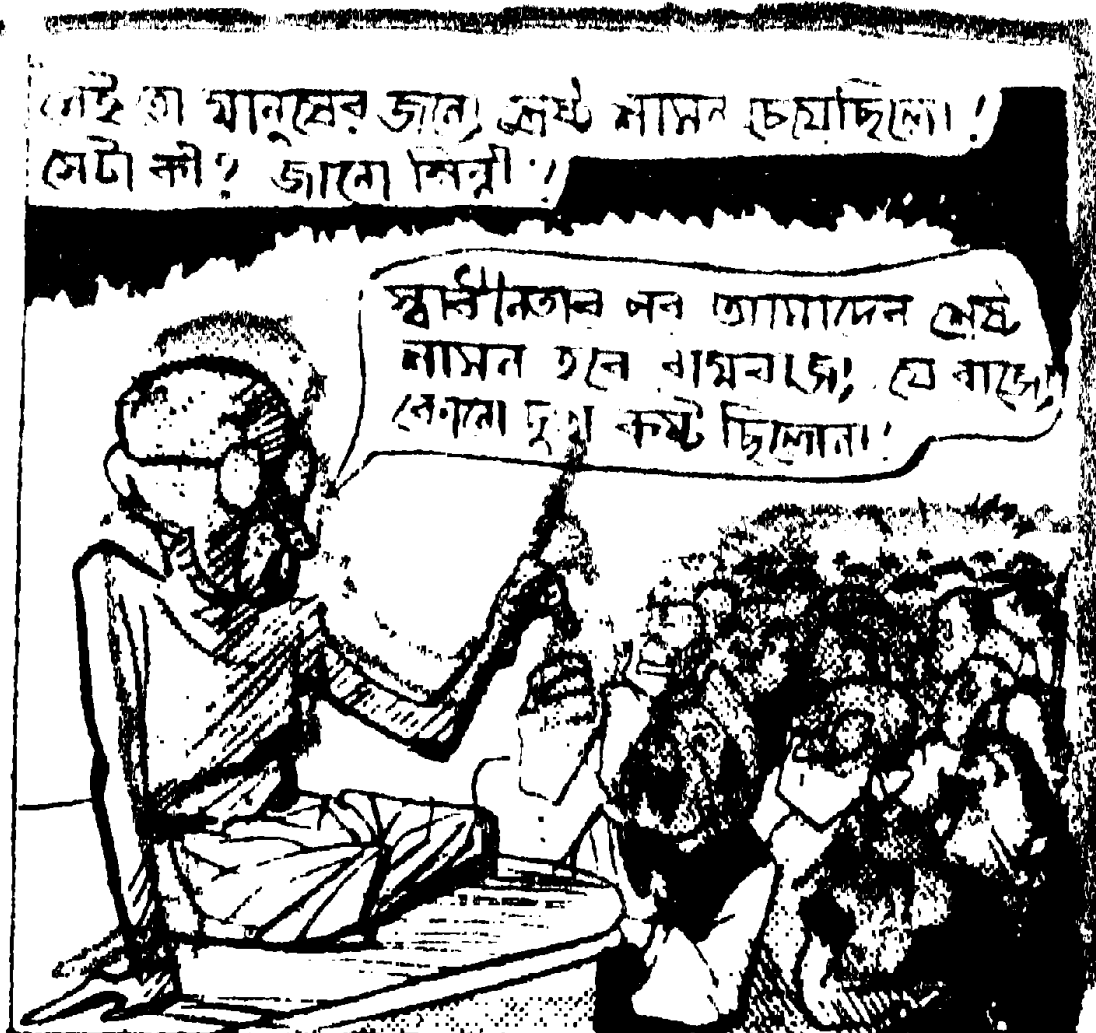 সেই তো মানুষের জন্যে শ্রেষ্ঠ শাসন চেয়েছিলো!
সেটা কী? জানো গিন্নী?
স্বাধীনতার পর আমাদের শ্রেষ্ঠ
শাসন হবে রামরাজ্য, যে রাজ্যে
কোনো দুঃখ কষ্ট ছিলোনা!